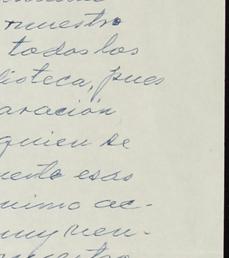 nuestro
todos los
lioteca, pues
aración
quien se
mente esas
nimo ac-
muy ven-